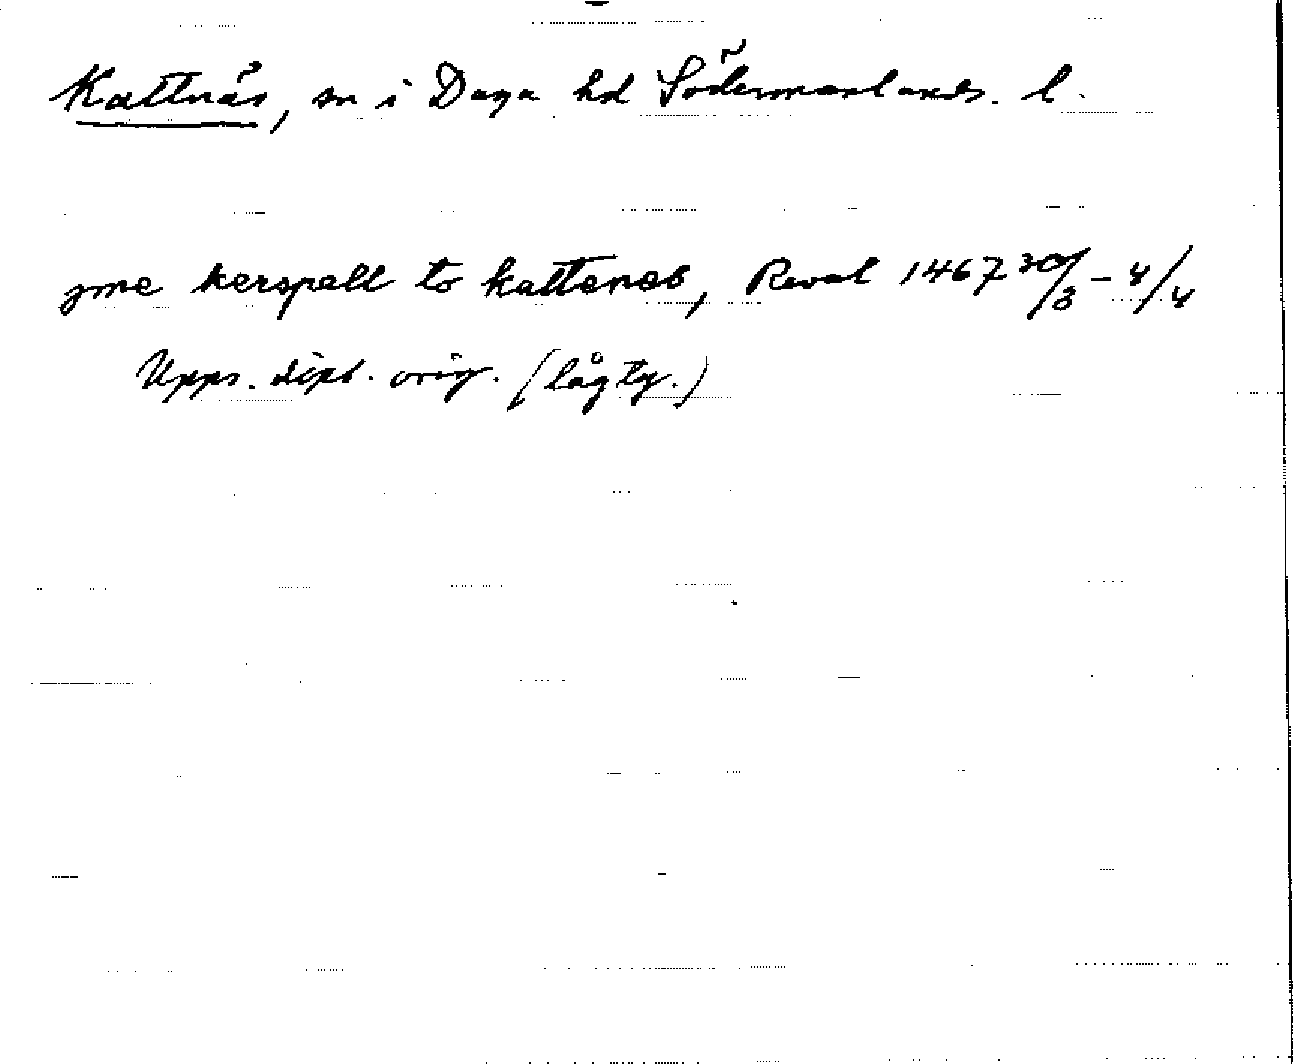 Kattnäs, sn i Daga hd Södermanlands. l.
yme kerspell to kattenes, Reval 1467 30/3 - 4/4
Upps. dipl. orig. (lågty.)